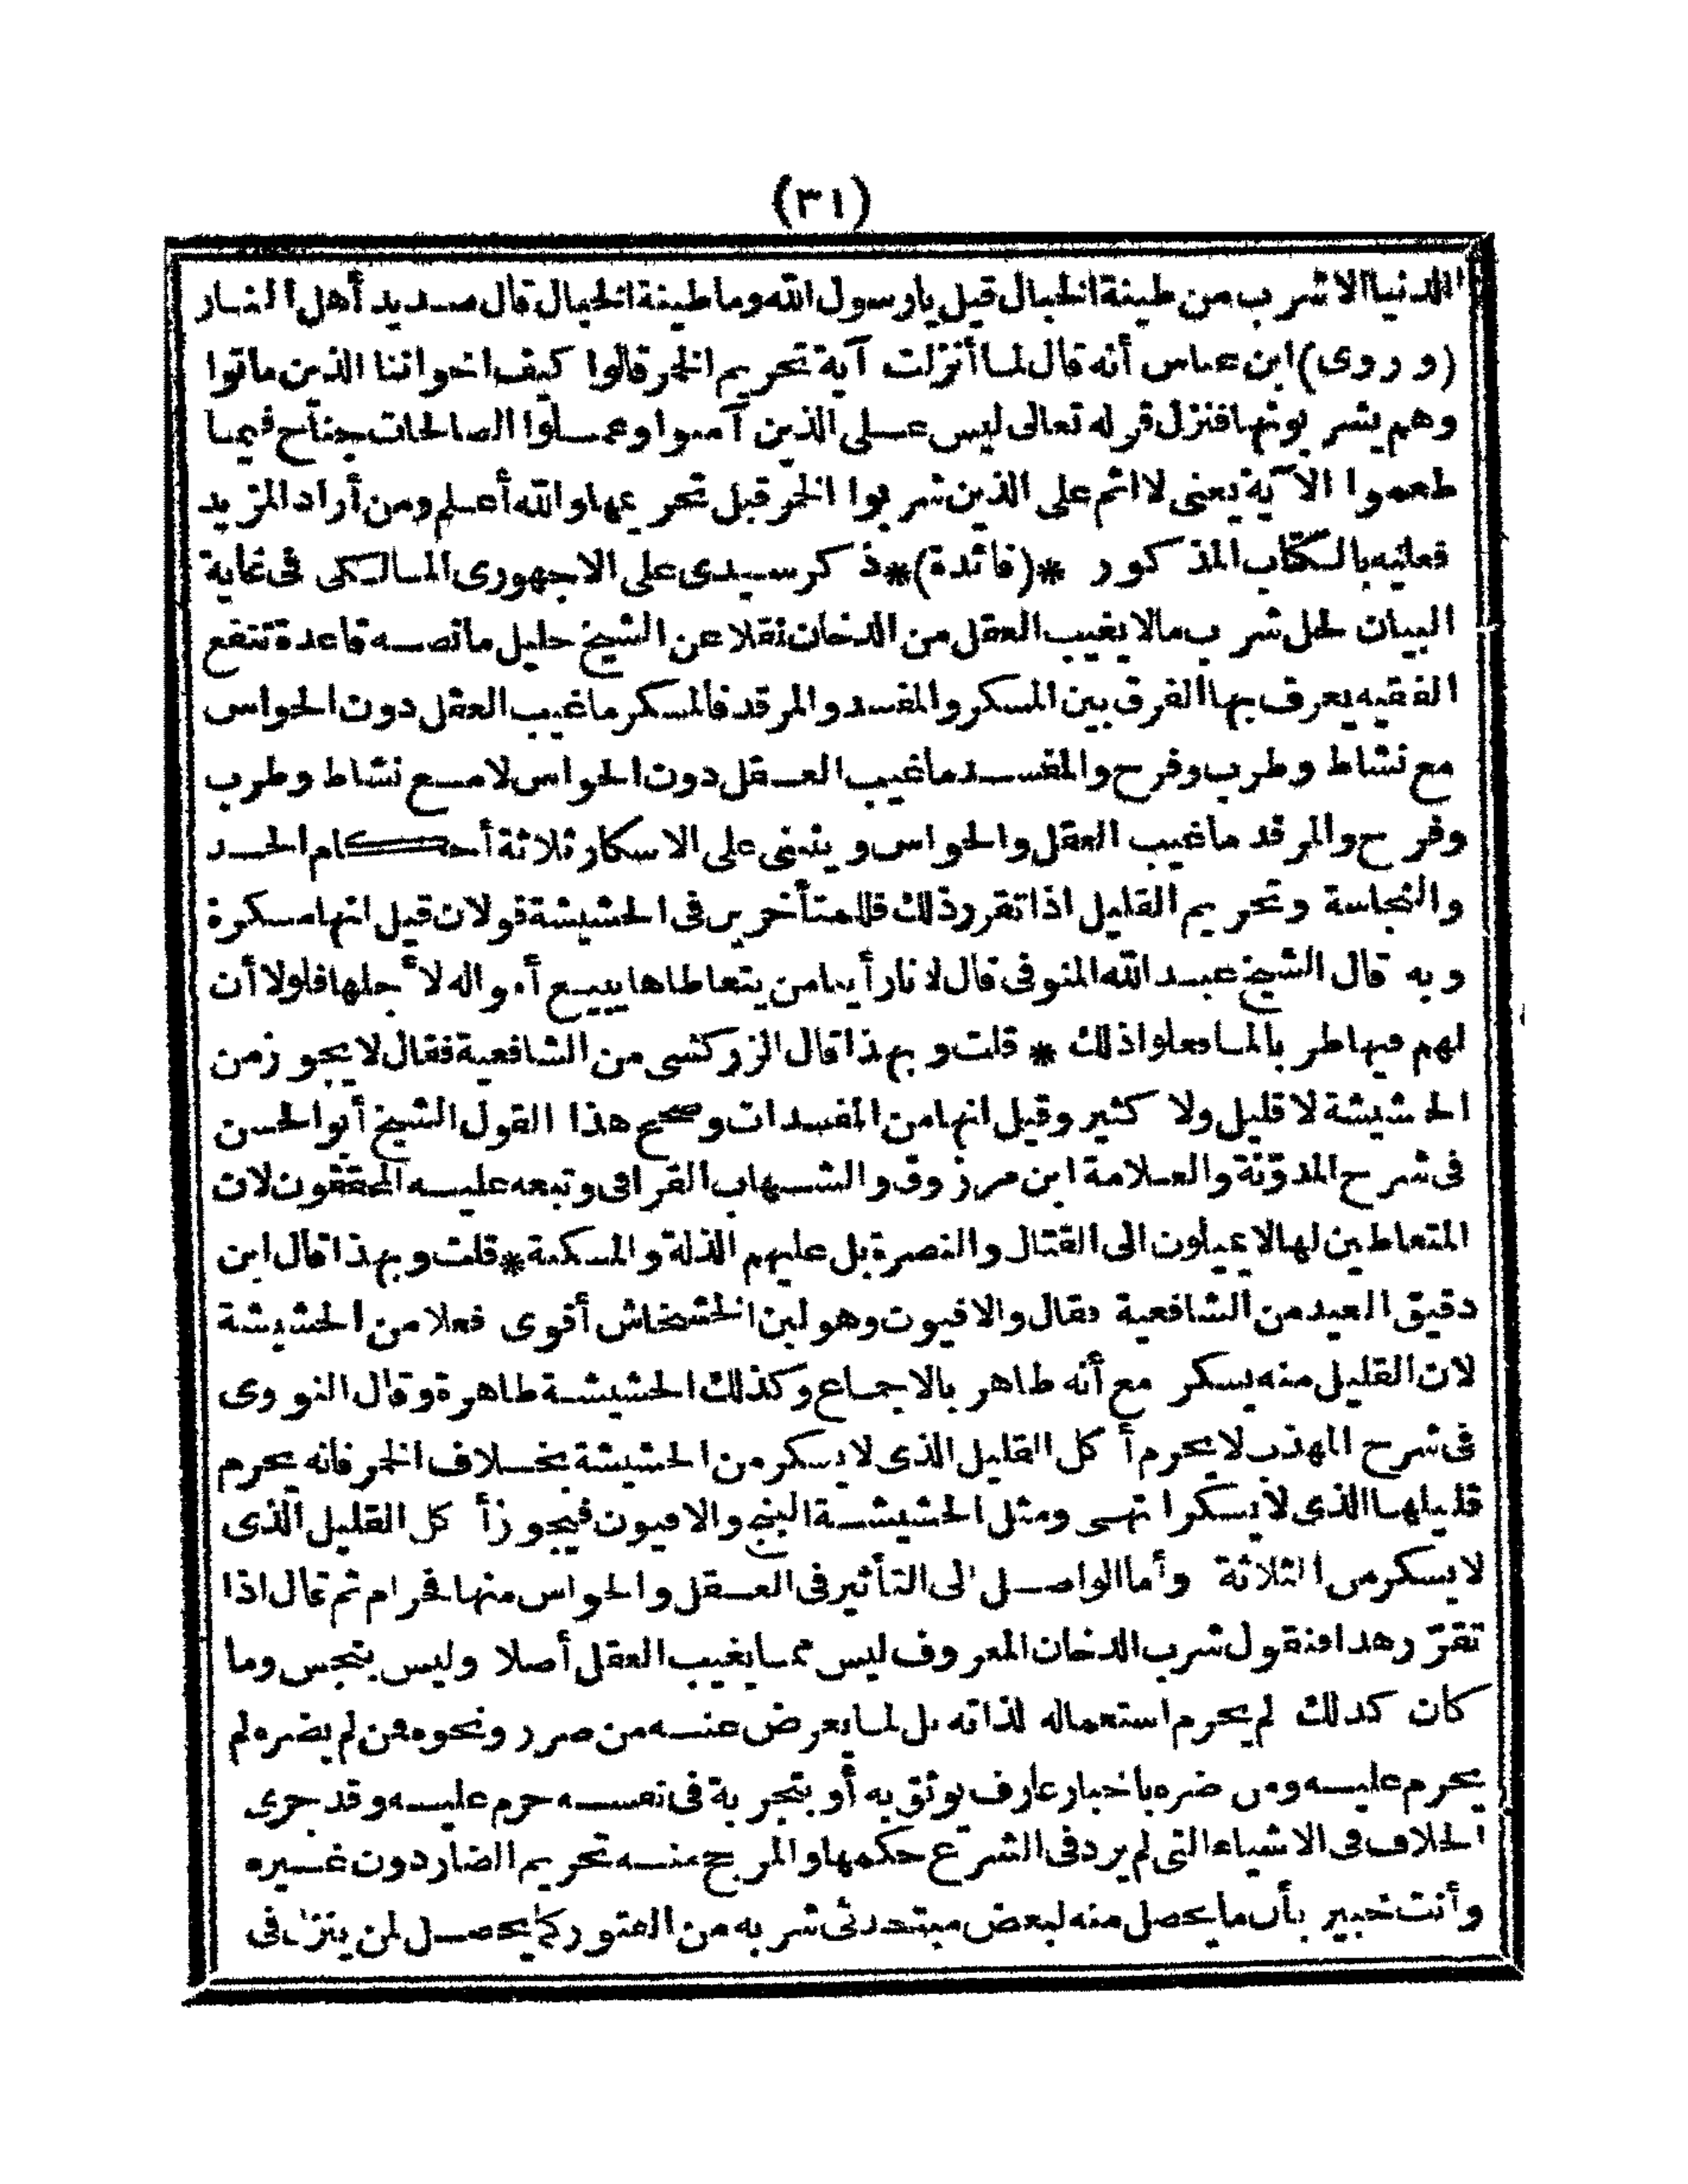 (٣١)
الدنيا الا شرب من طينة الخبال قيل يارسول الله وما طينة الخبال قال صديد أهل النار
(وروى) ابن عباس أنه قال لما أنزلت آية تحريم الخمر قالوا كيف اخواننا الذين ماتوا
وهم يشربونها فنزل قوله تعالى ليس على الذين آمنوا وعملوا الصالحات جناح فيما
طعموا الآية يعنى لا اثم على الذين شربوا الخمر قبل تحريمها والله أعلم ومن أراد المزيد
فعليه بالكتاب المذكور *(فائدة)* ذكر سيدى على الاجهورى المالكى فى غاية
البيان لحل شرب مالا يغيب العقل من الدخان نقلا عن الشيخ خليل مانصه قاعدة تنفع
الفقيه يعرف بها الفرق بين المسكر والمفسد والمرقد فالمسكر ماغيب العقل دون الحواس
مع نشاط وطرب وفرح والمفسد ماغيب العقل دون الحواس لا مع نشاط وطرب
وفرح والمرقد ماغيب العقل والحواس وينبنى على الاسكار ثلاثة أحكام الحد
والنجاسة وتحريم القليل اذا تقرر ذلك فللمتأخرين فى الحشيشة قولان قيل انها مسكرة
وبه قال الشيخ عبد الله المنوفى قال لانا رأينا من يتعاطاها يبيع أمواله لأجلها فلولا أن
لهم فيها طربا لما فعلوا ذلك * قلت وبهذا قال الزركشى من الشافعية فقال لا يجوز من
الحشيشة لا قليل ولا كثير وقيل انها من المفسدات وصحح هذا القول الشيخ أبو الحسن
فى شرح المدوّنة والعلامة ابن مرزوق والشهاب القرافى وتبعه عليه المحققون لان
المتعاطين لها لا يميلون الى القتال والنصرة بل عليهم الذلة والمسكنة * قلت وبهذا قال ابن
دقيق العيد من الشافعية فقال والافيون وهو لبن الخشخاش أقوى فعلا من الحشيشة
لان القليل منه يسكر مع أنه طاهر بالاجماع وكذلك الحشيشة طاهرة وقال النووى
فى شرح المهذب لا يحرم أكل القليل الذى لا يسكر من الحشيشة بخلاف الخمر فانه يحرم
قليلها الذى لا يسكر انتهى ومثل الحشيشة البنج والافيون فيجوز أكل القليل الذى
لا يسكر من الثلاثة وأما الواصل الى التأثير فى العقل والحواس منها فحرام ثم قال اذا
تقرّر هذا فنقول شرب الدخان المعروف ليس مما يغيب العقل أصلا وليس بنجس وما
كان كذلك لم يحرم استعماله لذاته بل لما يعرض عنه من ضرر ونحوه فمن لم يضره لم
يحرم عليه ومن ضره باخبار عارف يوثق به أو بتجربة فى نفسه حرم عليه وقد جرى
الخلاف فى الاشياء التى لم يرد فى الشرع حكمها والمرجح منه تحريم الضار دون غيره
وأنت خبير بأن ما يحصل منه لبعض مبتدئى شربه من الفتور كما يحصل لمن ينزل فى